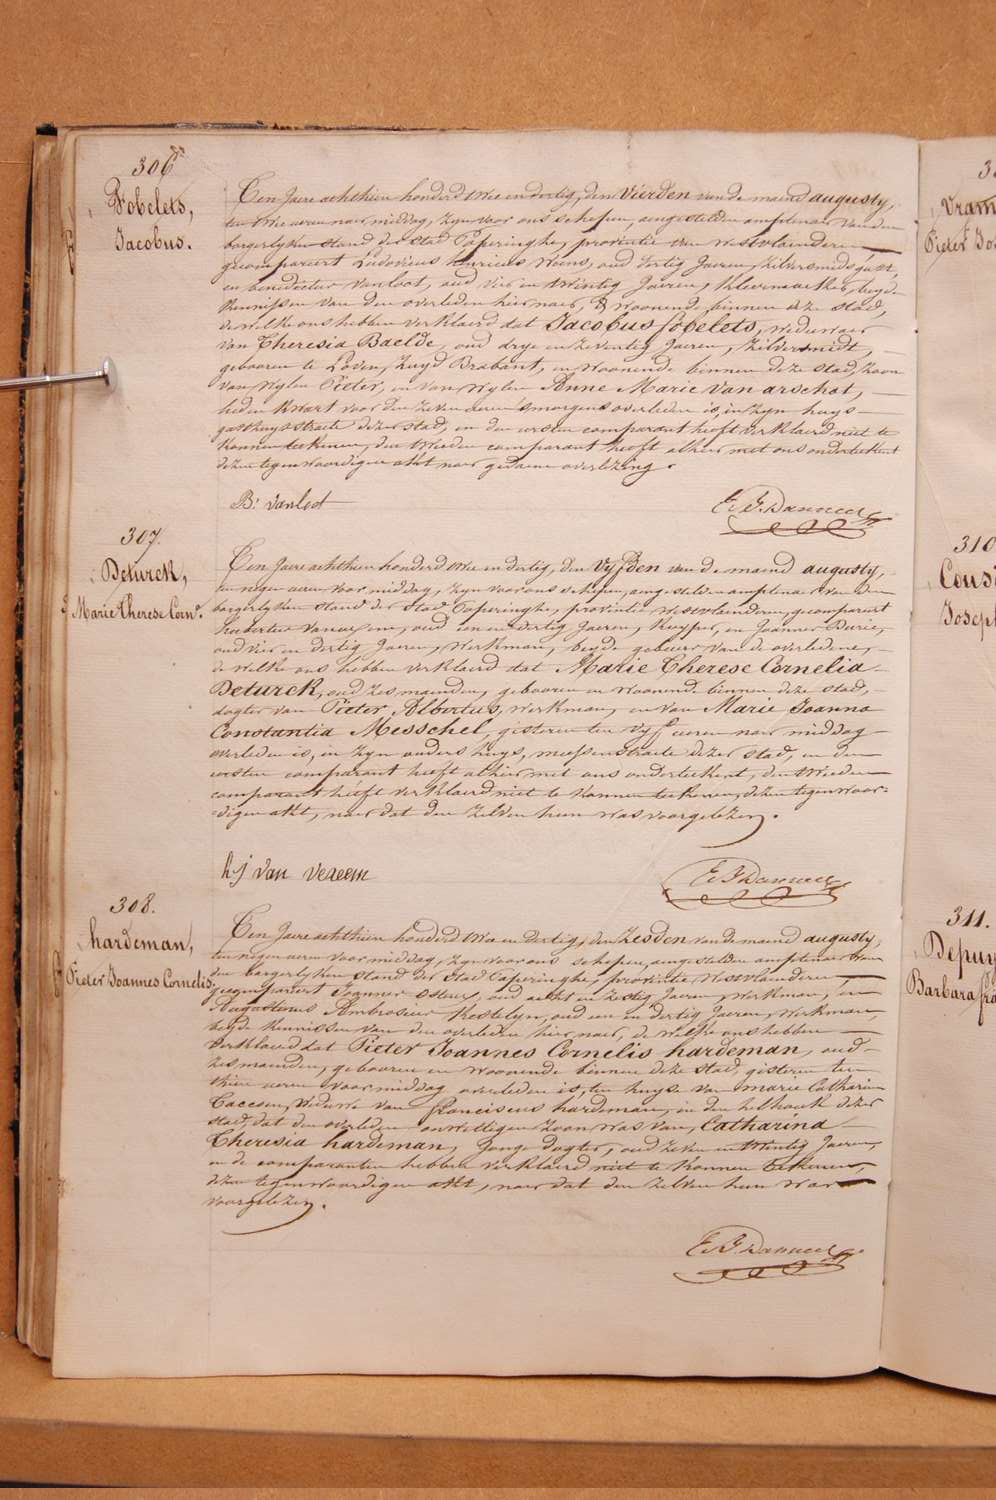 306
Fobelets,
Jacobus.
Ten Jaere achthien honderd twee en dertig, den Vierden van de maend augusty,
ten twee ueren naer middag, zyn voor ons schepen, aengestelden amptenaer van den
borgerlyken stand der stad Poperinghe, provintie van Westvlaenderen
gecompareert Ludovicus henricus Woens, oud dertig Jaeren, zilversmids gast,
en benedictus vanloot, oud vier en twintig Jaeren, kleermaeker, beyde
kennissen van den overleden hier naer, & woonende binnen deze stad,
de welke ons hebben verklaerd dat Jacobus fobelets, weduwaer
van Theresia Baelde, oud drye en zeventig Jaeren, zilversmidt,
gebooren te Loven, Zuyd Brabant, en woonende binnen deze stad, zoon
van wylen Pieter, en van wylen Anne Marie van arschot,
heden kwart voor den zeven ueren s'morgens overleden is, in zyn huys
gasthuysstraete dezer stad, en den eersten comparant heeft verklaerd niet te
konnen teekenen, den tweeden comparant heeft alhier met ons onderteekent
dezen tegenwoordigen akt naer gedaene overlezing.
B: vanloot
E. F. Danneel
307.
Deturck,
Marie Therese Corn.
Ten Jaere achthien honderd twee en dertig, den Vyfden van de maend augusty,
ten negen ueren voor middag, zyn voor ons schepen, aengestelden amptenaer van den
borgerlyken stand der stad Poperinghe, provintie westvlaenderen, gecompareert
oud een en dertig Jaeren, kuyper, en Joannes Durie,
oud vier en dertig Jaeren, werkman, beyde gebuers van de overledene,
de welke ons hebben verklaerd dat Marie Therese Cornelia
Deturck, oud zes maenden, gebooren en woonende binnen deze stad,
dogter van Pieter Albertus, werkman, en van Marie Joanna
Constantia Messchel, gisteren ten vyf ueren naer middag
overleden is, in zyn ouders huys, meessenstraete dezer stad, en den
eersten comparant heeft alhier met ons onderteekent, den tweeden
comparant heeft verklaerd niet te konnen teekenen, dezen tegenwoor=
=digen akt, naer dat den zelven hun was voorgelezen.
h j van vexeem
E. F. Danneel
308.
hardeman,
Pieter Joannes Cornelis,
Ten Jaere achthien honderd twee en dertig, den Zesden van de maend augusty,
ten negen ueren voor middag, zyn voor ons schepen, aengestelden amptenaer van
den borgerlyken stand der stad Poperinghe, provintie Westvlaenderen,
gecompareert Joannes Osteux, oud acht en zestig Jaeren, werkman, en
Augustinus Ambrosius kestelyn, oud een en dertig Jaeren, werkman,
beyde kennissen van den overleden hier naer, de welke ons hebben
verklaerd dat Pieter Joannes Cornelis hardeman, oud
zes maenden, gebooren en woonende binnen deze stad, gisteren ten
thien ueren voormiddag overleden is, ten huyse van marie Catharine
Caccoen, Weduwe van franciscus hardeman, in den helhoek dezer
stad, dat den overleden onwettigen zoon was van, Catharina
Theresia hardeman, Jonge dogter, oud zeven en twintig Jaeren,
en de comparanten hebben verklaerd niet te konnen teekenen,
dezen tegenwoordigen akt, naer dat den zelven hun was
voorgelezen.
E. F. Danneel
Vram
Pieter Jos
310
Cous
Joseph
311.
Depuy
Barbara fra